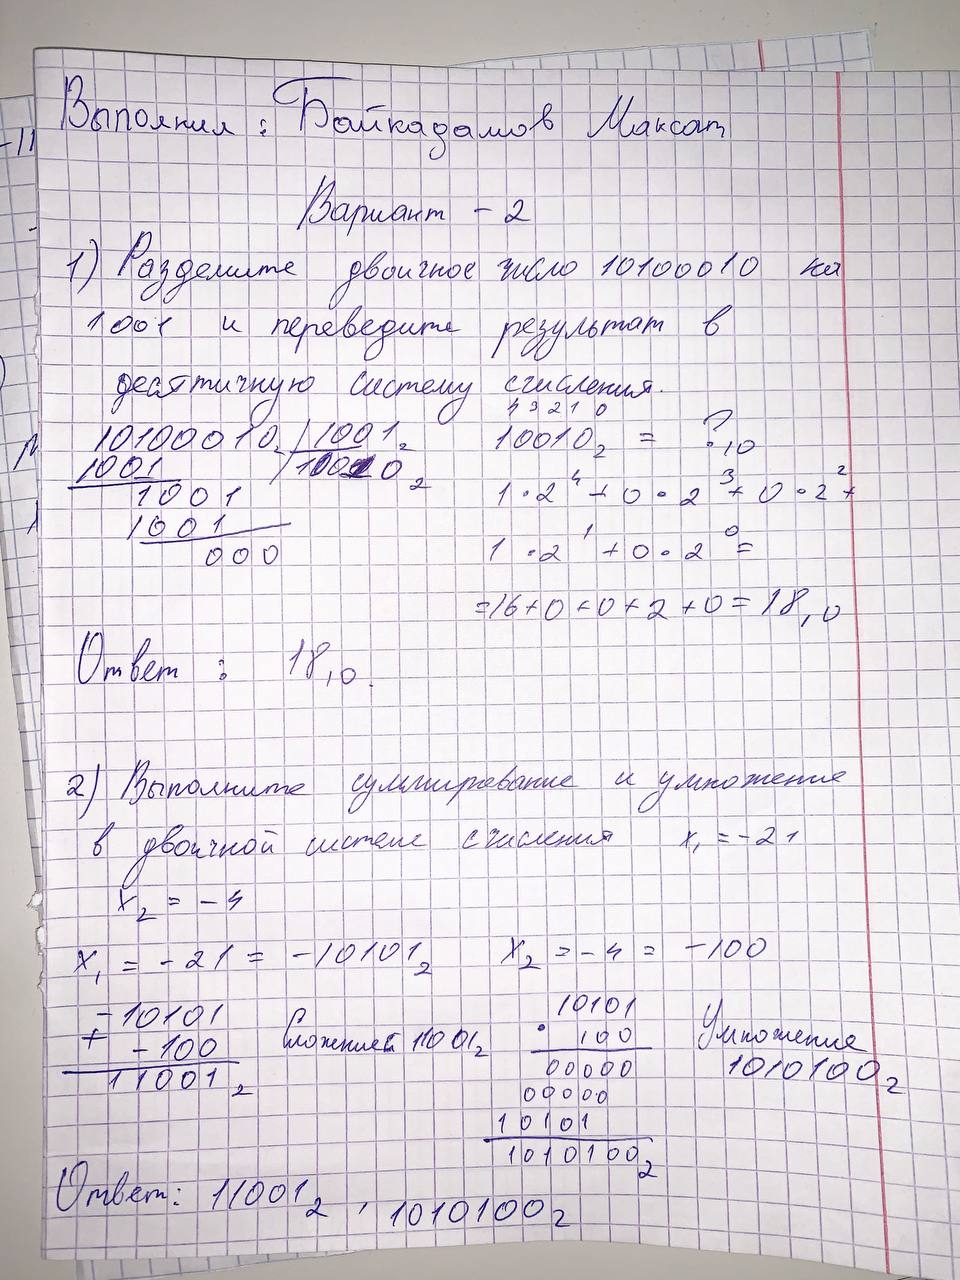 Выполнил : Байкадамов Максат
Вариант - 2
1) Разделите двоичное число 10100010 на
1001 и переведите результат в
десятичную систему счисления.
10100010₂ | 1001₂
1001 | 10010₂
1001
1001
000
4 3 2 1 0
10010₂ = ?₁₀
1 · 2⁴ + 0 · 2³ + 0 · 2² +
1 · 2¹ + 0 · 2⁰ =
= 16 + 0 + 0 + 2 + 0 = 18₁₀
Ответ : 18₁₀.
2) Выполните суммирование и умножение
в двоичной системе счисления x₁ = -21
x₂ = -4
x₁ = -21 = -10101₂ x₂ = -4 = -100
-10101
+ -100
11001₂
Сложение 11001₂
10101
· 100
00000
00000
10101
1010100₂
Умножение
1010100₂
Ответ: 11001₂ , 1010100₂